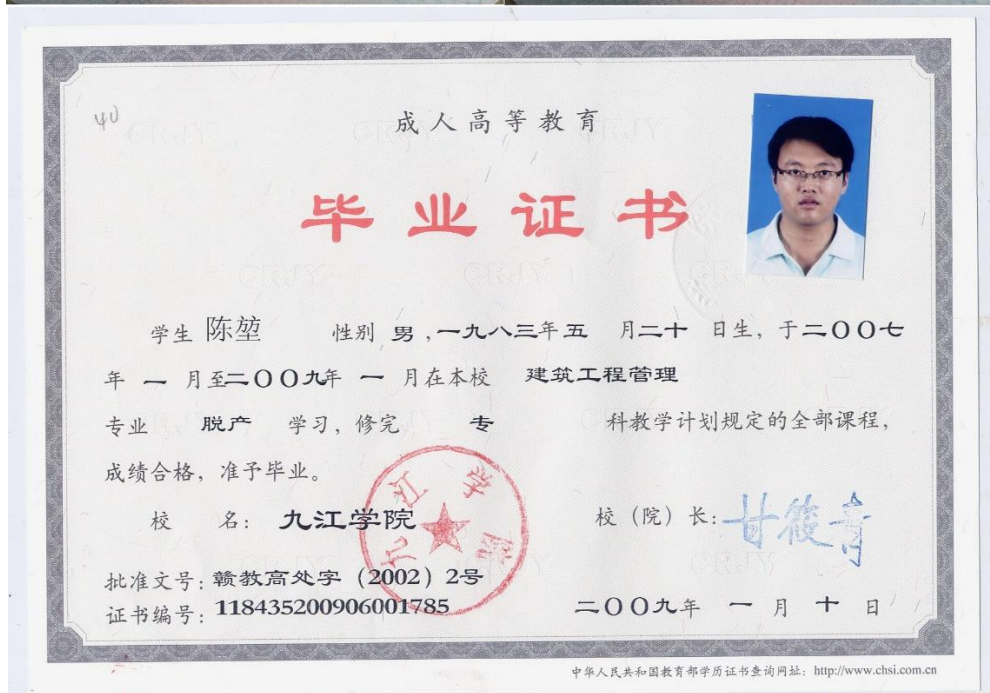 40
成人高等教育
毕业证书
学生 陈堃 性别 男 ,一九八三年 五 月二十 日生, 于二〇〇七
年 一 月至二〇〇九年 一 月在本校 建筑工程管理
专业 脱产 学习, 修完 专 科教学计划规定的全部课程,
成绩合格, 准予毕业。
校 名: 九江学院
九江学院
校 (院) 长: 甘筱青
批准文号: 赣教高处字 (2002) 2号
证书编号: 118435200906001785
二〇〇九年 一 月 十 日
中华人民共和国教育部学历证书查询网址: http://www.chsi.com.cn